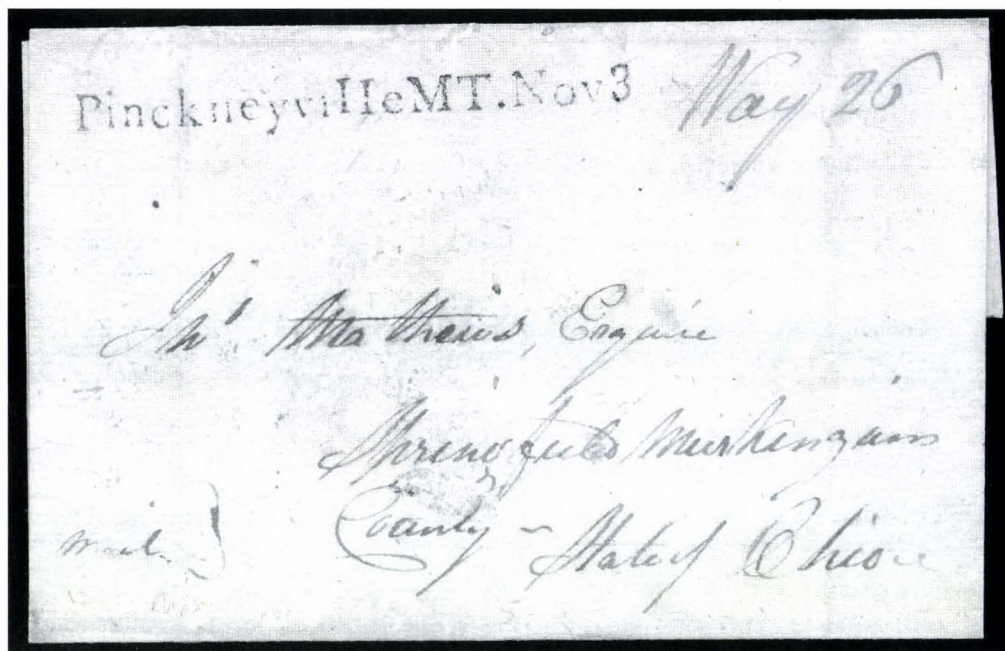 PinckneyvilleMT.Nov3
Way 26
Jnº Mathews, Esquire
Springfield Muskingum
County ~ State of Ohio
Mail